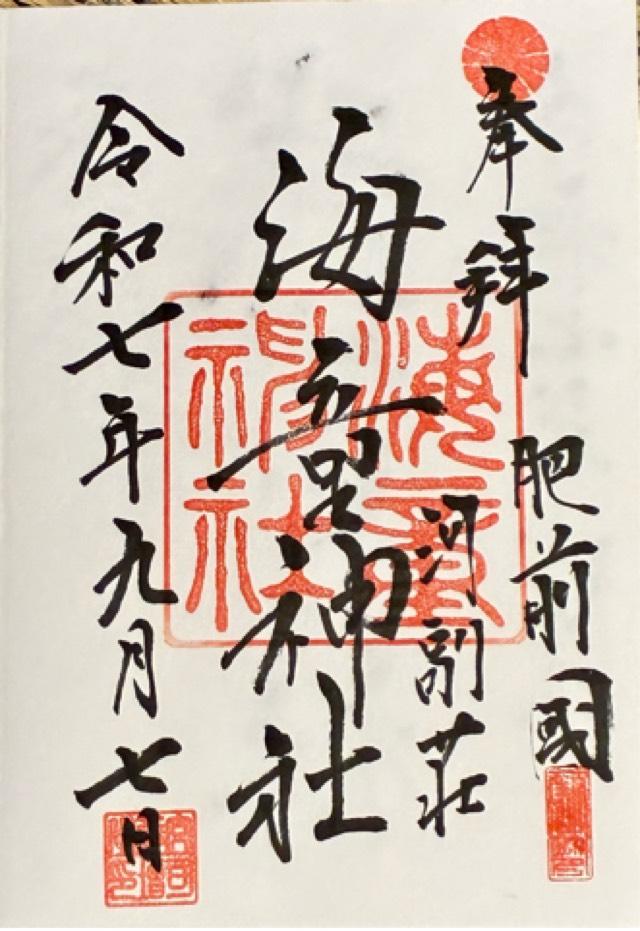 奉拝
肥前國
河副荘
海童神社
令和七年九月七日
海童
神社